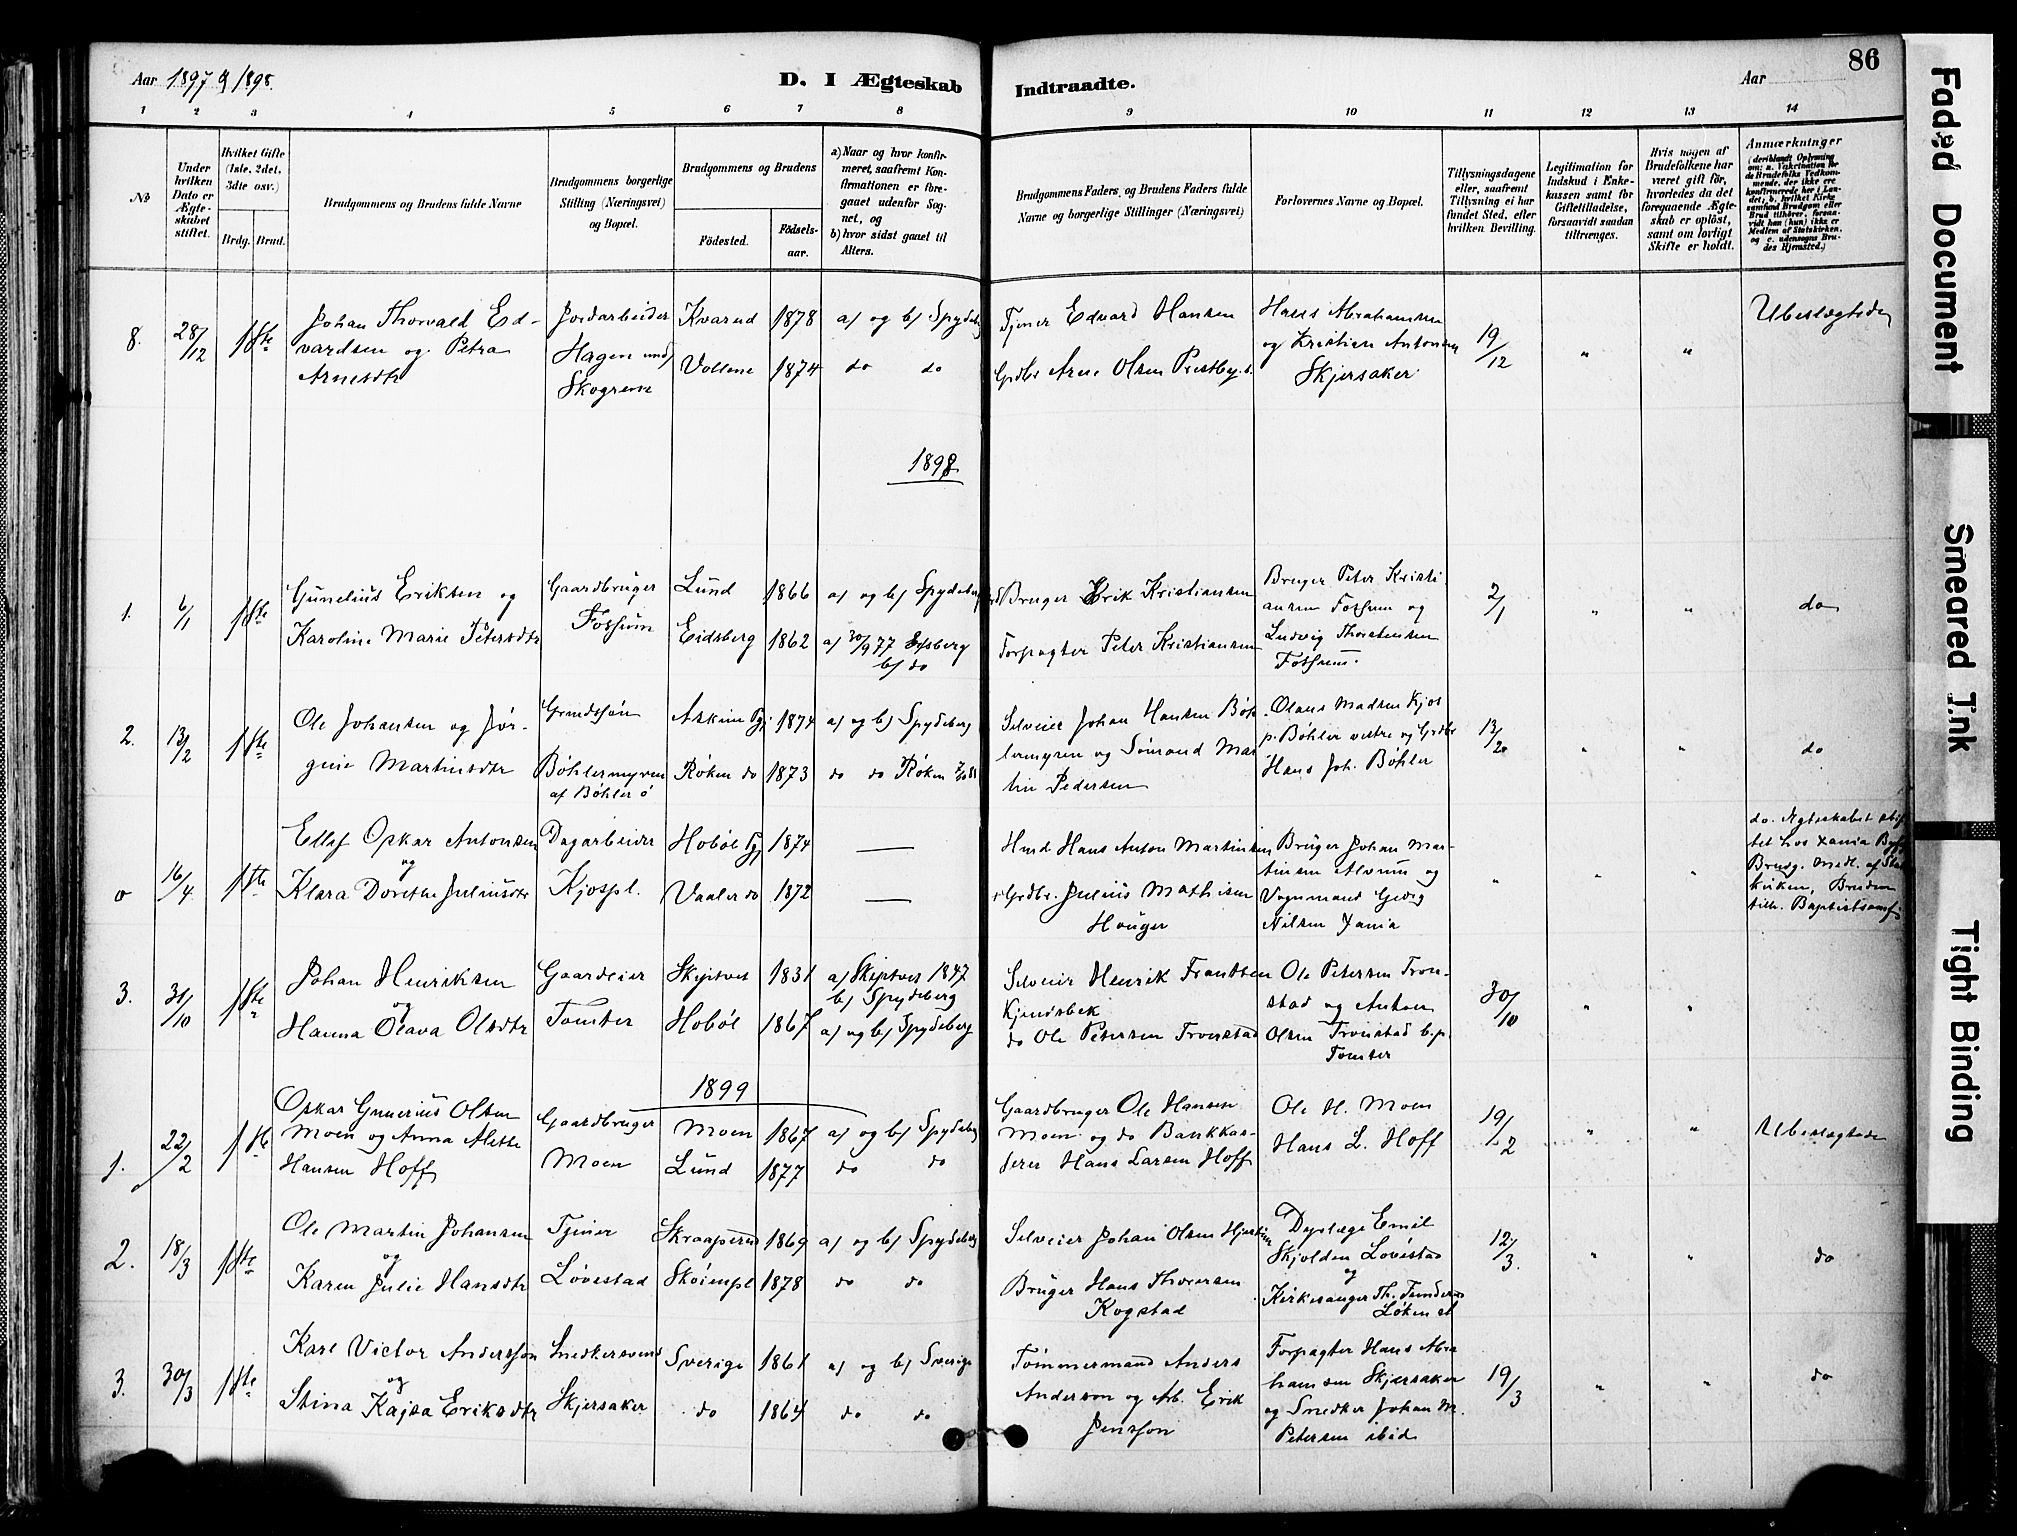 Aar 1897 & 1898.
D. I Ægteskab Indtraadte.
Aar
86
1 2 3 4 5 6 7 8 9 10 11 12 13 14
No
Under hvilken Dato er Ægteskabet stiftet.
Hvilket Gifte (1ste, 2det, 3dte osv.)
Brdg. Brud.
Brudgommens og Brudens fulde Navne
Brudgommens borgerlige Stilling (Næringsvei) og Bopæl.
Brudgommens og Brudens
Födested.
Födselsaar.
a) Naar og hvor konfirmeret, saafremt Konfirmationen er foregaaet udenfor Sognet, og
b) hvor sidst gaaet til Alters.
Brudgommens Faders, og Brudens Faders fulde Navne og borgerlige Stillinger (Næringsvei)
Forlovernes Navne og Bopæl.
Tillysningsdagene eller, saafremt Tillysning ei har fundet Sted, efter hvilken Bevilling.
Legitimation for Indskud i Enkekassen samt for Giftetilladelse, forsaavidt saadan tiltrænges.
Hvis nogen af Brudefolkene har været gift før, hvorledes da det foregaaende Ægteskab er oplöst, samt om lovligt Skifte er holdt.
Anmærkninger
(deriblandt Oplysning om: a. Vakcination for de Brudefolks Vedkommende, der ikke ere konfirmerede her i Landet; b. hvilket Kirkesamfund Brudgom eller Brud tilhører, forsaavidt han (hun) ikke er Medlem af Statskirken, og c. udensogns Brudes Hjemsted.)
8. 28/12 1ste Johan Thorvald Edvardsen og Petra Arnesdtr
Jordarbeider Hagen und/ Skogrem
Kvarud 1878 a/ og b/ Spydeberg
Vollene 1874 do do
Tjener Edvard Hansen
Grdbr Arne Olsen Prestby.
Hans Abrahamsen og Kristian Antonsen Skjersaker
19/12 " " Ubeslægtede
1898
1. 6/1 1ste Gunelius Eriksen og Karoline Marie Petersdtr
Gaardbruger Fossum
Lund 1866 a/ og b/ Spydeberg
Eidsberg 1862 a/ 30/9 77 Eidsberg b/ do
Bruger Erik Kristiansen
Forpagter Peter Kristiansen
Bruger Peter Kristiansen Fossum og Ludvig Thorstensen Fossum.
2/1 " " do
2. 13/2 1ste Ole Johansen og Jørgine Martinsdtr
Grmdssøn Bøhlermyren af Bøhler ø
Askim Pgj 1874 a/ og b/ Spydeberg
Røken do 1873 do do Røken
Selveier Johan Hansen Bøhlermyren og Sømand Martin Pedersen
Olaus Madsen Kjos p. Bøhler vestre og Grdbr Hans Joh. Bøhler
13/2 " " do
o 16/4 1ste Ellef Oskar Antonsen og Klara Dorethe Juliusdtr
Dagarbeider Kjospl.
Hobøl Pgj 1874 —
Vaaler do 1872 —
Hmd Hans Anton Martinsen
+ Grdbr. Julius Mathisen Houger
Bruger Johan Martinsen Alvim og Vognmand Georg Nilsen Xania
" " "
do. Ægteskabet stiftet hos Xania Byf. Brudg. Medl. af Statskirken, Bruden tilh. Baptistsamf.
3. 31/10 1ste Johan Henriksen og Hanna Olava Olsdtr
Gaardeier Tomter
Skiptvet 1831 a/ Skiptvet 1847 b/ Spydeberg
Hobøl 1867 a/ og b/ Spydeberg
Selveier Henrik Frandsen Kjendsbek
do Ole Petersen Tronstad
Ole Petersen Tronstad og Anton Olsen Tronstad b.p. Tomter
30/10 " "
1899
1. 22/2 1ste Oskar Gunerius Olsen Moen og Anna Alette Hansen Hoff
Gaardbruger Moen
Moen 1867 a/ og b/ Spydeberg
Lund 1877 do do
Gaardbruger Ole Hansen Moen og do Bankkasserer Hans Larsen Hoff
Ole H. Moen
Hans L. Hoff
19/2 " " Ubeslægtede
2. 18/3 1ste Ole Martin Johansen og Karen Julie Hansdtr
Tjener Løvestad
Skraaperud 1869 a/ og b/ Spydeberg
Skoimpl 1878 do do
Selveier Johan Olsen
Bruger Hans Thoresen Kogstad
Dyrlæge Emil Skjolden Løvestad og Kirkesanger Th. Løken
12/3. " " do
3. 30/3 1ste Karl Victor Andersson og Stina Kajsa Eriksdtr
Snedkersvend Skjersaker
Sverige 1861 a/ og b/ Sverige
do 1864 do do
Tømmermand Anders Anderson og Arb. Erik Jensson
Forpagter Hans Abrahamsen Skjærsaker og Snedker Johan M. Petersen ibid
19/3 " " do
Faded Document
Smeared Ink
Tight Binding